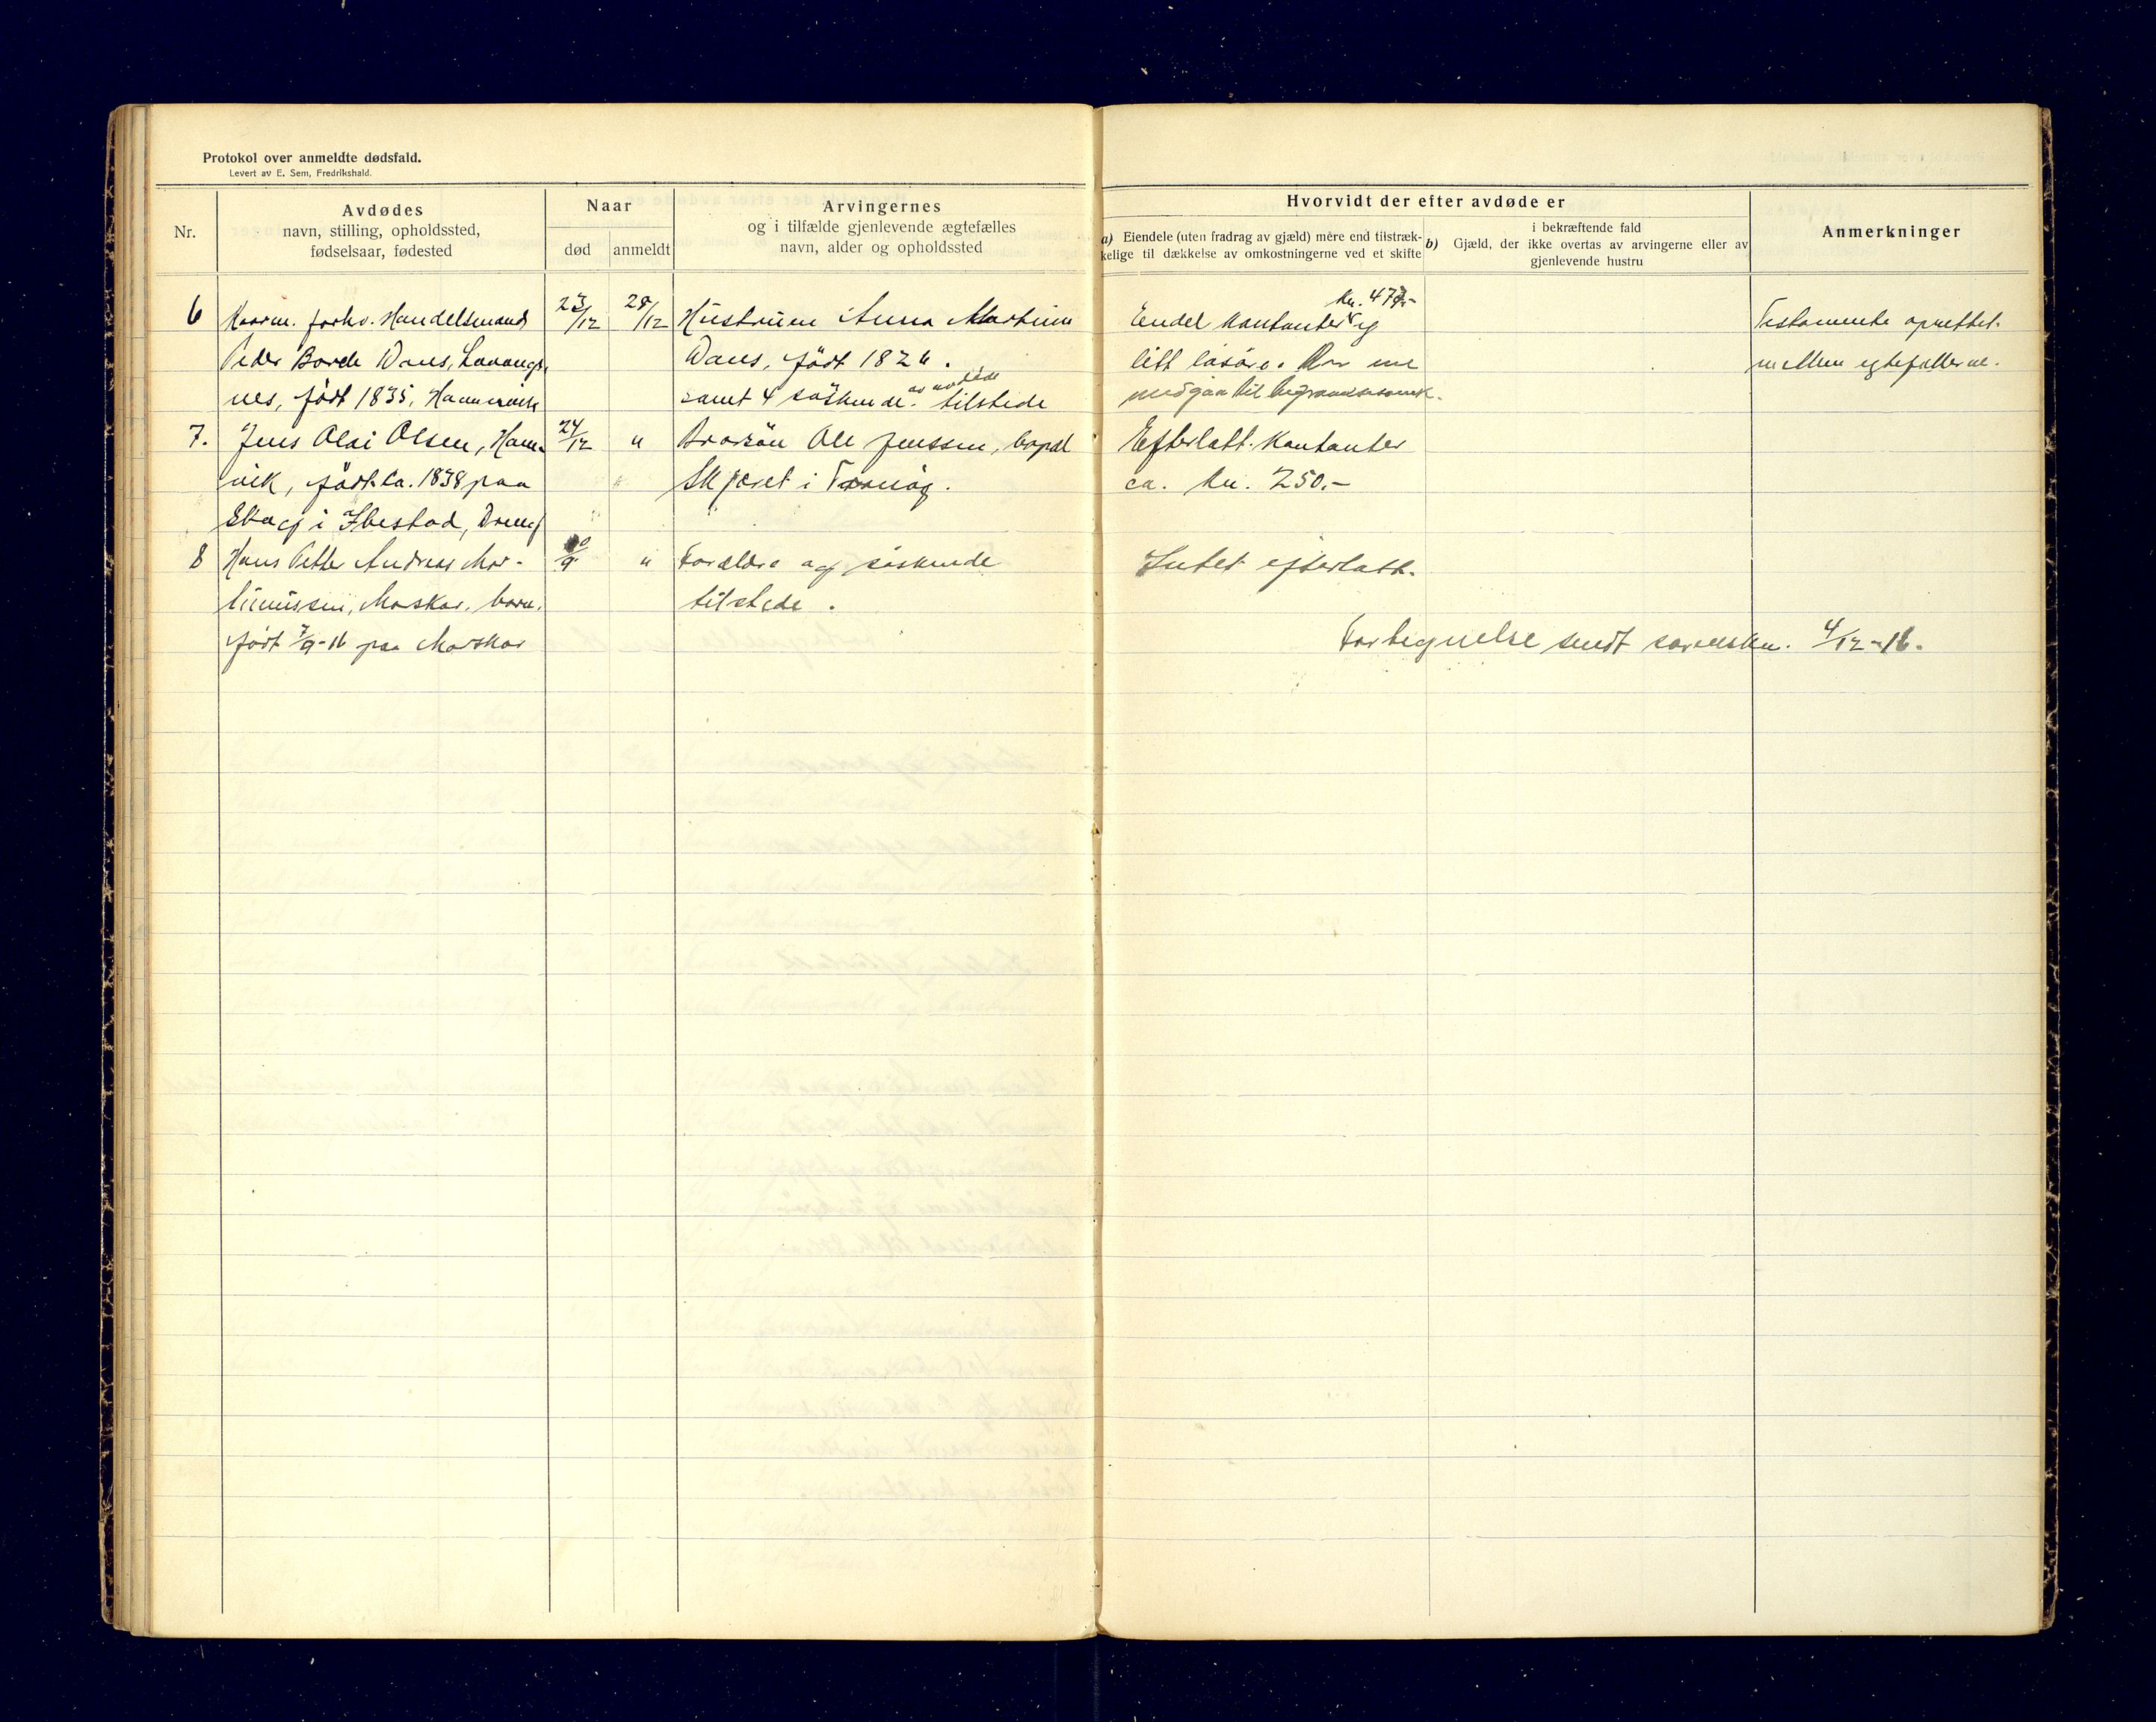 Protokol over anmeldte dødsfald.
Levert av E. Sem, Fredrikshald.
Nr.
Avdødes
navn, stilling, opholdssted,
fødselsaar, fødested
Naar
død
anmeldt
Arvingernes
og i tilfælde gjenlevende ægtefælles
navn, alder og opholdssted
Hvorvidt der efter avdøde er
a) Eiendele (uten fradrag av gjæld) mere end tilstræk-
kelige til dækkelse av omkostningerne ved et skifte
i bekræftende fald
b) Gjæld, der ikke overtas av arvingerne eller av
gjenlevende hustru
Anmerkninger
6
forhv. Handelsmand
Peder Borch Daus, Lavangs-
nes, født 1835, Hammervik
23/12
28/12
Hustruen Anna Martine
Daus, født 182
samt 4 søskende av avdøde tilstede
Kr. 477,-
Eendel kontanter og
litt løsøre.
medgaa til
Testamente oprettet
mellem egtefellerne.
7.
Jens Olai Olsen, Ham-
vik, født ca. 1838 paa
i Ibestad, Dreng
24/12
"
Brorsøn Ole Jenssen, bopæl
Skjæret i Tranøy.
Efterlatt kontanter
ca. kr. 250.-
8
Hans Petter Andreas Mar-
tinussen, Moskar, barn,
født 7/9-16 paa Moskar
"
Forældre og søskende
tilstede.
Intet efterlatt.
Fortegnelse sendt sorenskr. 4/12-16.